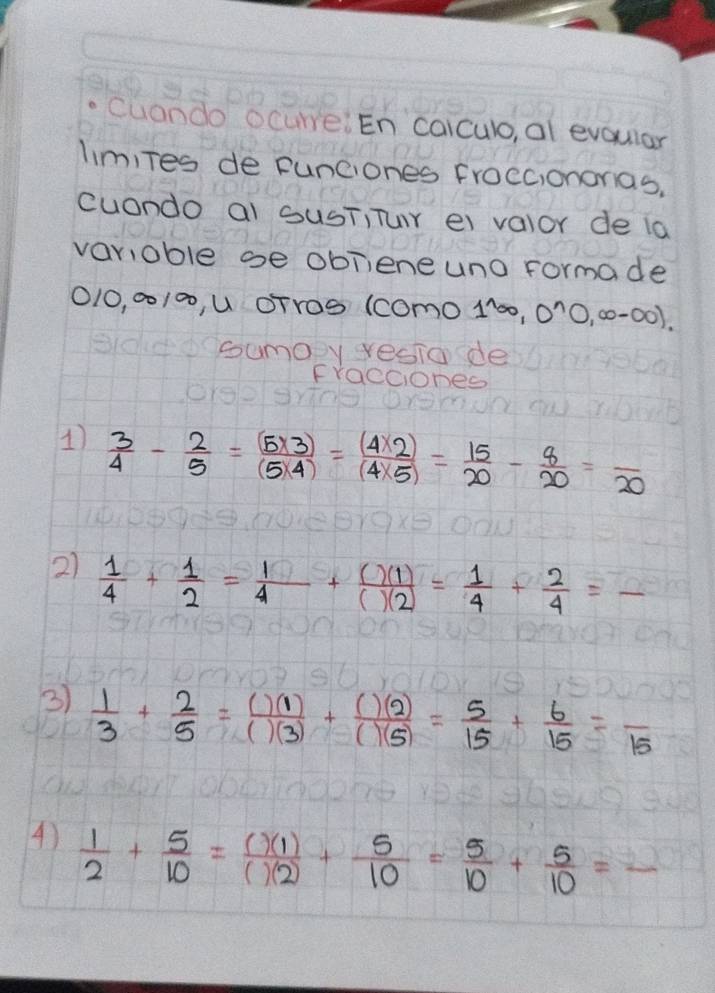 • cuando ocurre: En calculo, al evaular
limites de funciones froccionarias,
cuando al sustituir el valor de la
variable se obtiene una forma de
0/0, ∞/∞, u otros (como 1^∞, 0^0, ∞-∞).
suma y resta de
fracciones
1) 3/4 - 2/5 = (5×3)/(5×4) = (4×2)/(4×5) = 15/20 - 8/20 = /20
2) 1/4 + 1/2 = 1/4 + ( )(1)/( )(2) = 1/4 + 2/4 = —
3) 1/3 + 2/5 = ( )(1)/( )(3) + ( )(2)/( )(5) = 5/15 + 6/15 = /15
4) 1/2 + 5/10 = ( )(1)/( )(2) + 5/10 = 5/10 + 5/10 = —